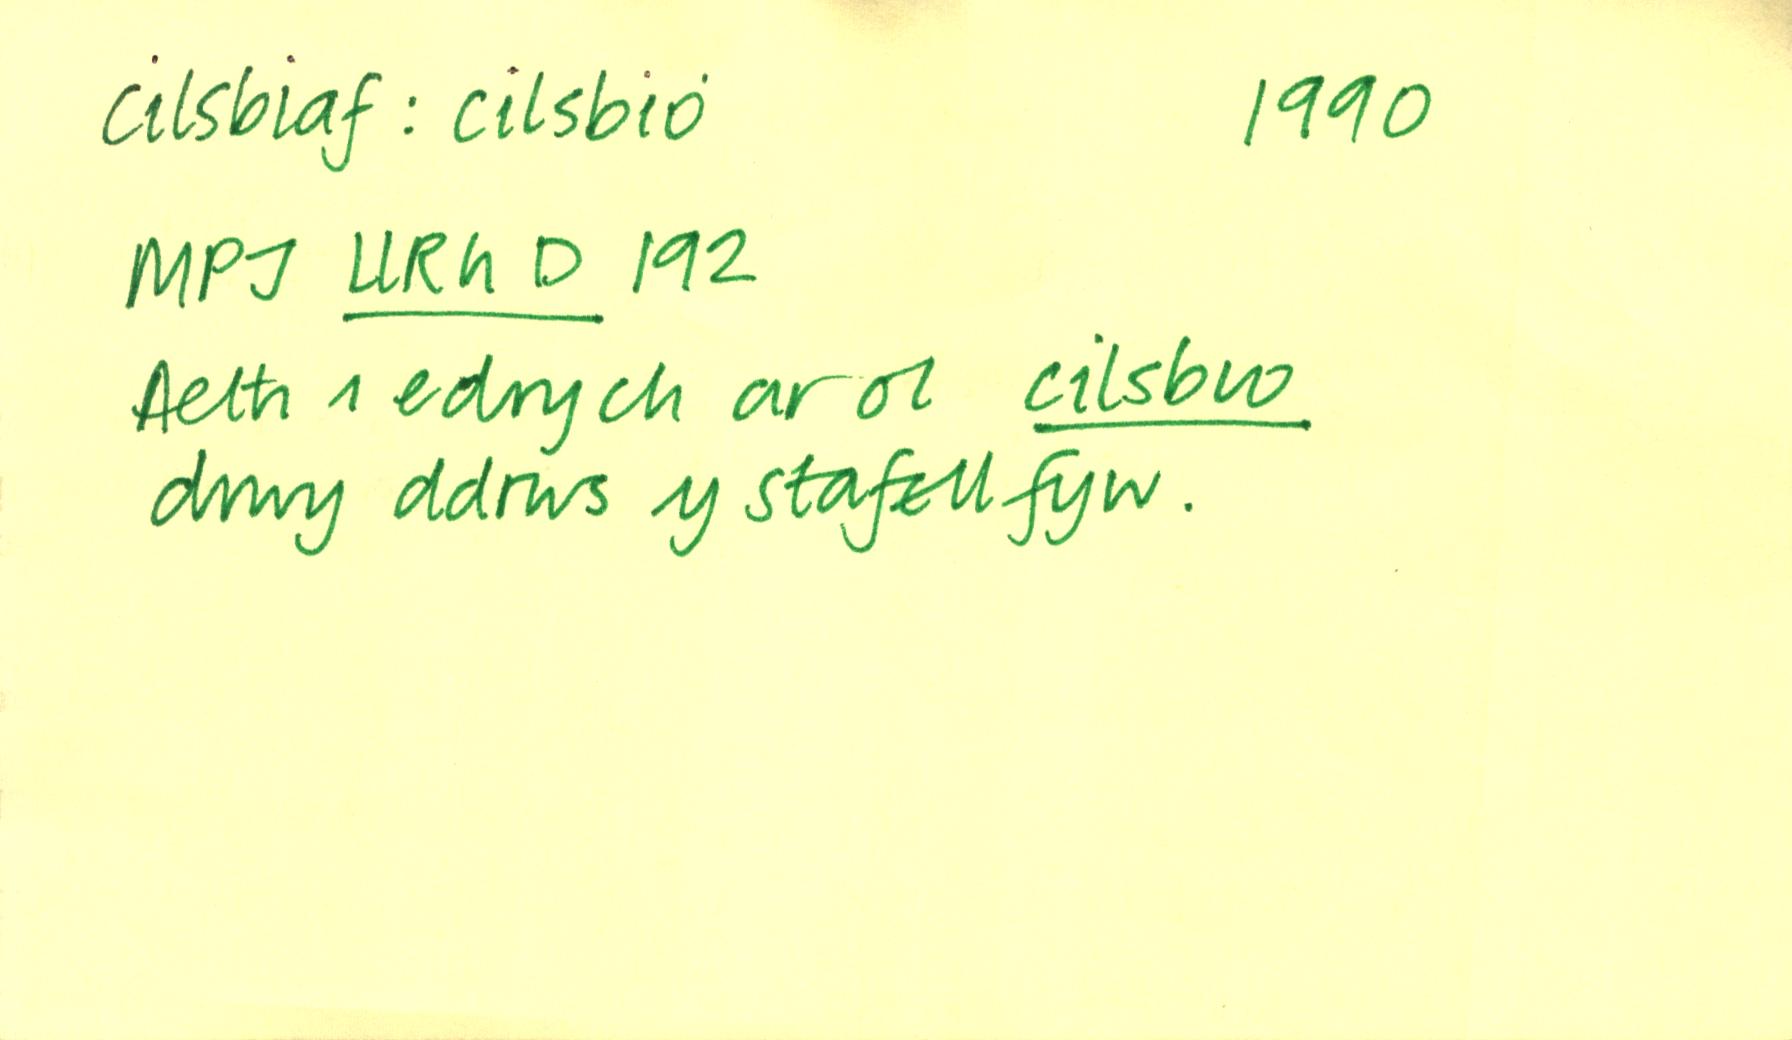 cilsbiaf: cilsbio 1990
MPJ LlRh D 192
Aeth i edrych ar ol cilsbio
drwy ddrws y stafell fyw.